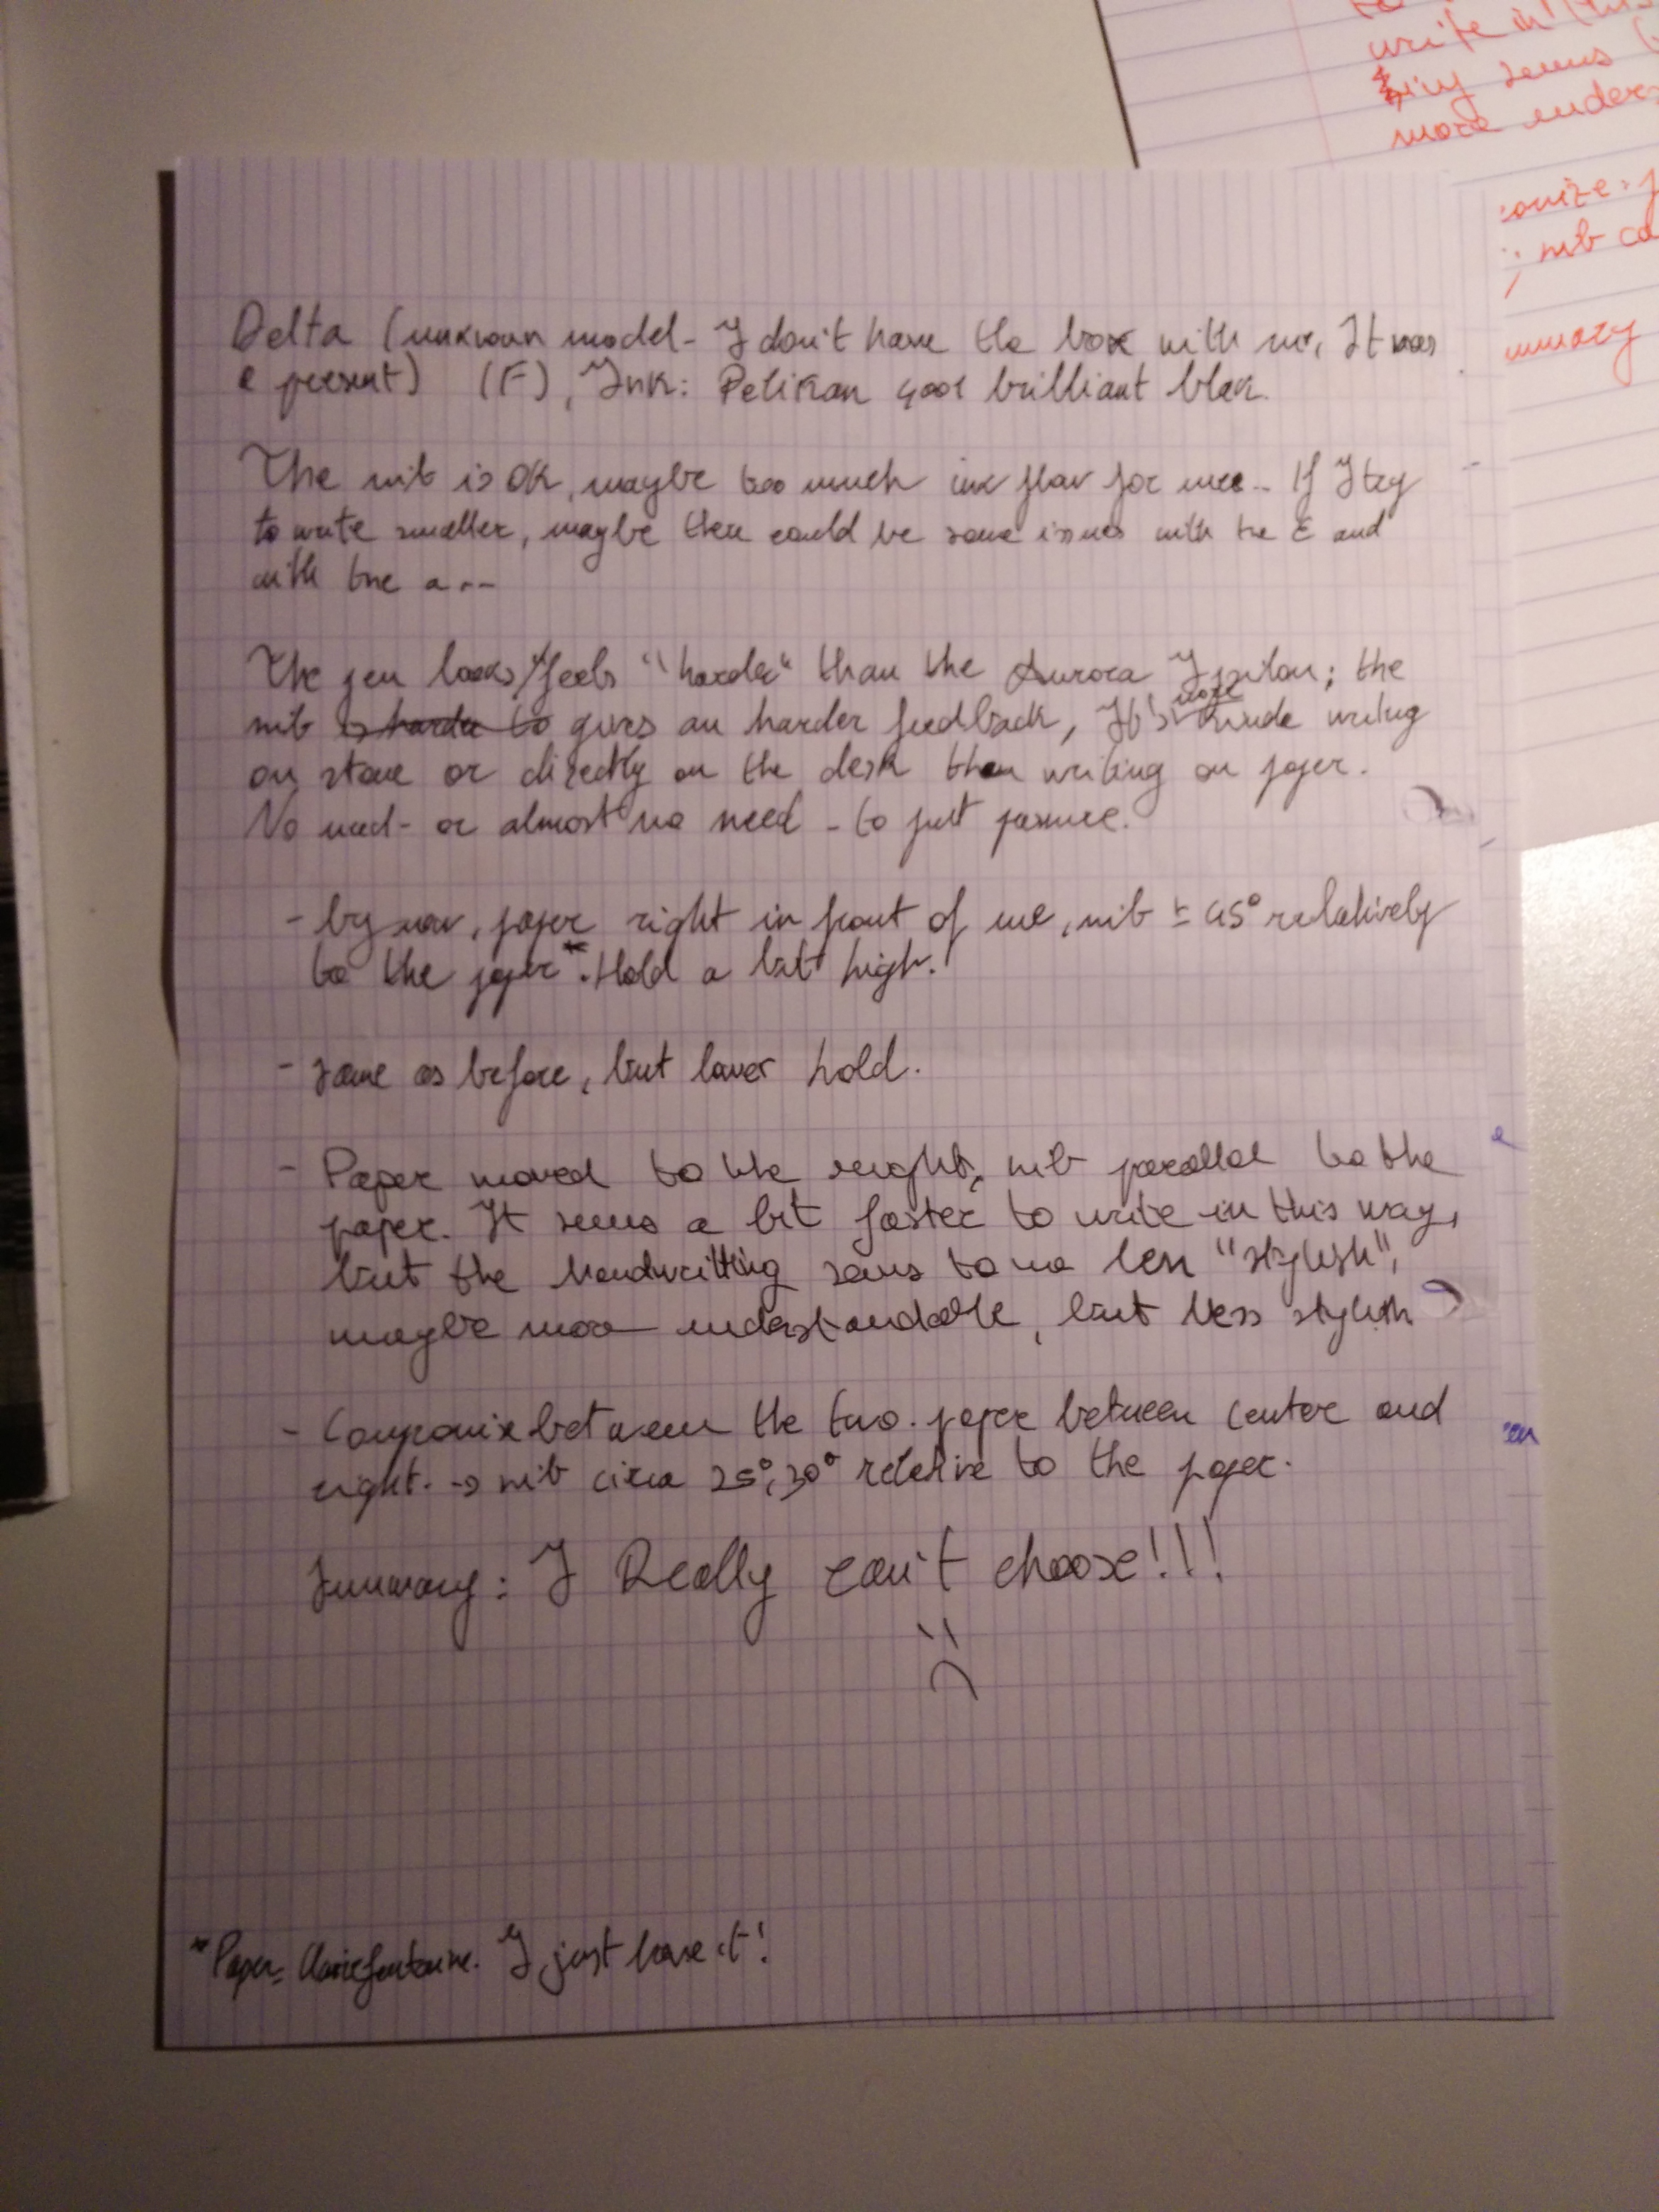 Delta (unknown model - I don't have the box with me, It was
a present) (F), Ink: Pelikan 4001 brilliant black.
The nib is OK, maybe too much ink flow for me.. If I try
to write smaller, maybe there could be some issues with the E and
with the a...
The pen looks/feels "harder" than the Aurora Ipsilon; the
nib is harder to gives an harder feedback, It's more kinde writing
on stone or directly on the desk than writing on paper.
No need - or almost no need - to put pressure.
- by now, paper right in front of me, nib ± 45° relatively
to the paper*. Hold a bit high.
- same as before, but lower hold.
- Paper moved to the right, nib parallel to the
paper. It seems a bit faster to write in this way,
but the handwritting seems to me less "stylish",
maybe more understandable, but less stylish
- Compromise between the two. paper between center and
right. → nib circa 25°, 30° relative to the paper.
Summary: I Really can't choose!!!
:(
*Paper: Clairefontaine. I just love it!
write in this
seems
more
nib